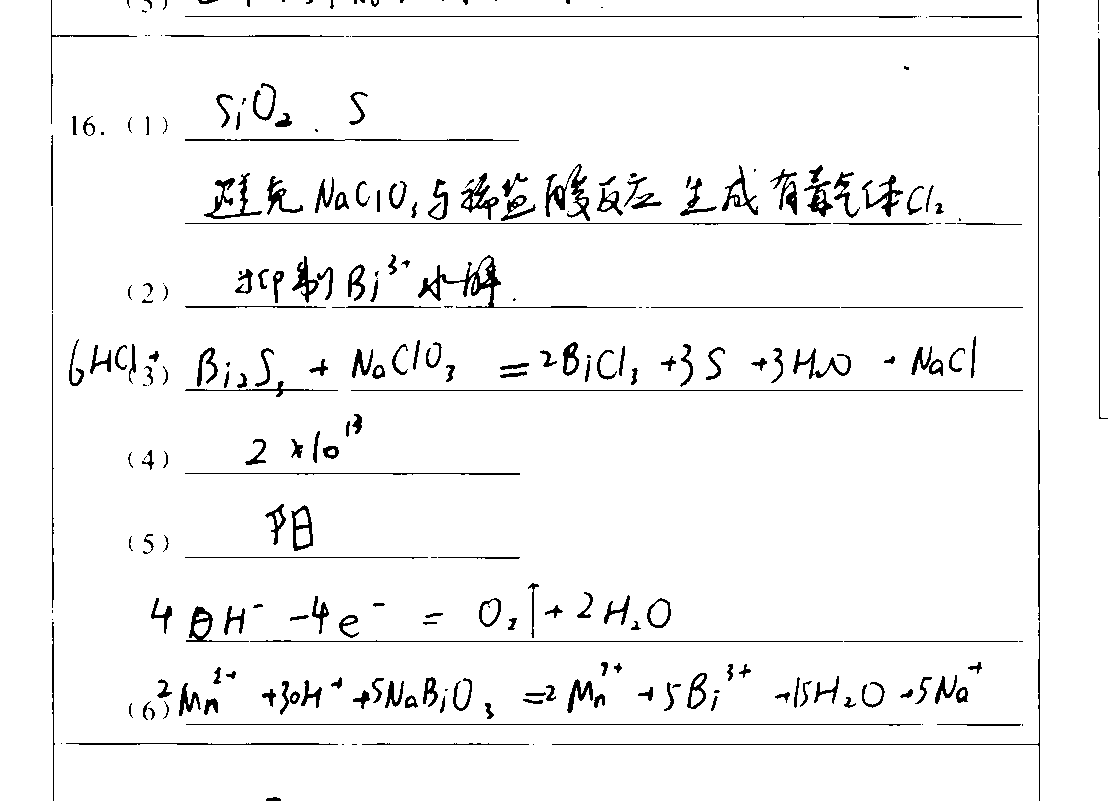 (3)
16. (1) SiO₂ . S
避免NaClO₃与稀盐酸反应 生成有毒气体Cl₂.
(2) 抑制Bi³⁺水解.
6HCl+ (3) Bi₂S₃ + NaClO₃ = 2BiCl₃ +3S +3H₂O + NaCl
(4) 2×10¹³
(5) 阳
4OH⁻ -4e⁻ = O₂↑+2H₂O
(6) 2Mn²⁺ +30H⁺ +5NaBiO₃ =2Mn⁷⁺ +5Bi³⁺ +15H₂O +5Na⁺